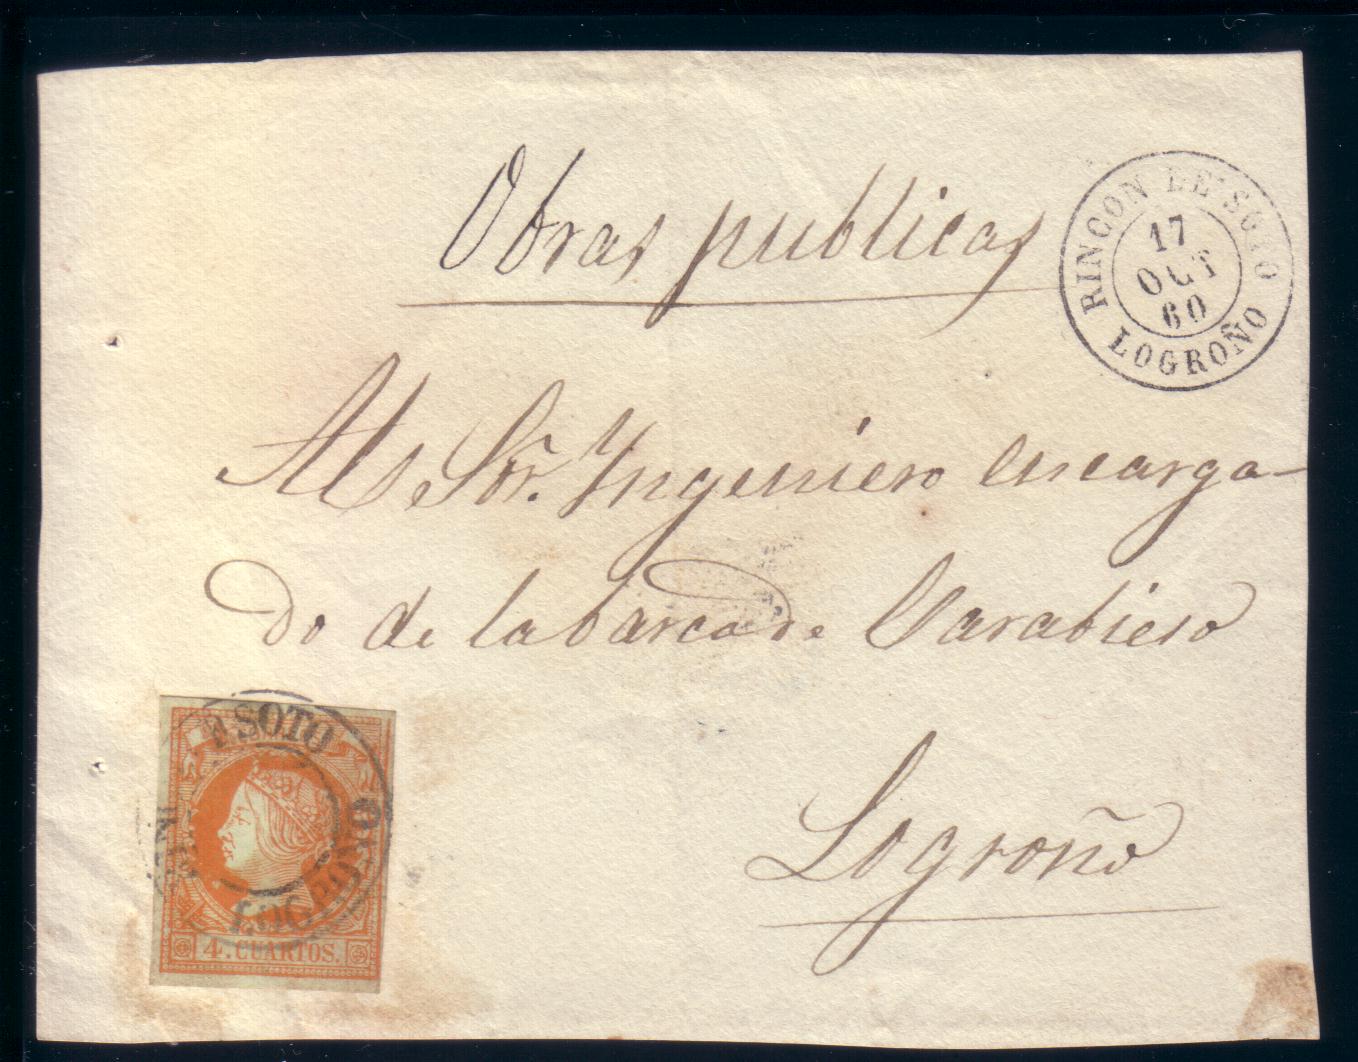 Obras publicas
RINCON DE SOTO
17
OCT
60
LOGROÑO
Al Sor. Yngeniero encarga-
do de la barca de
Logroño
E SOTO
LOGROÑO
4. CUARTOS.